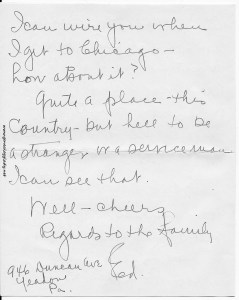 I can wire you when
I get to Chicago -
how about it?
Quite a place - this
Country - but hell to be
a stranger or a serviceman
I can see that.
Well - cheers
Regards to the Family
Ed.
946 Duncan Ave
Yeadon
Pa.